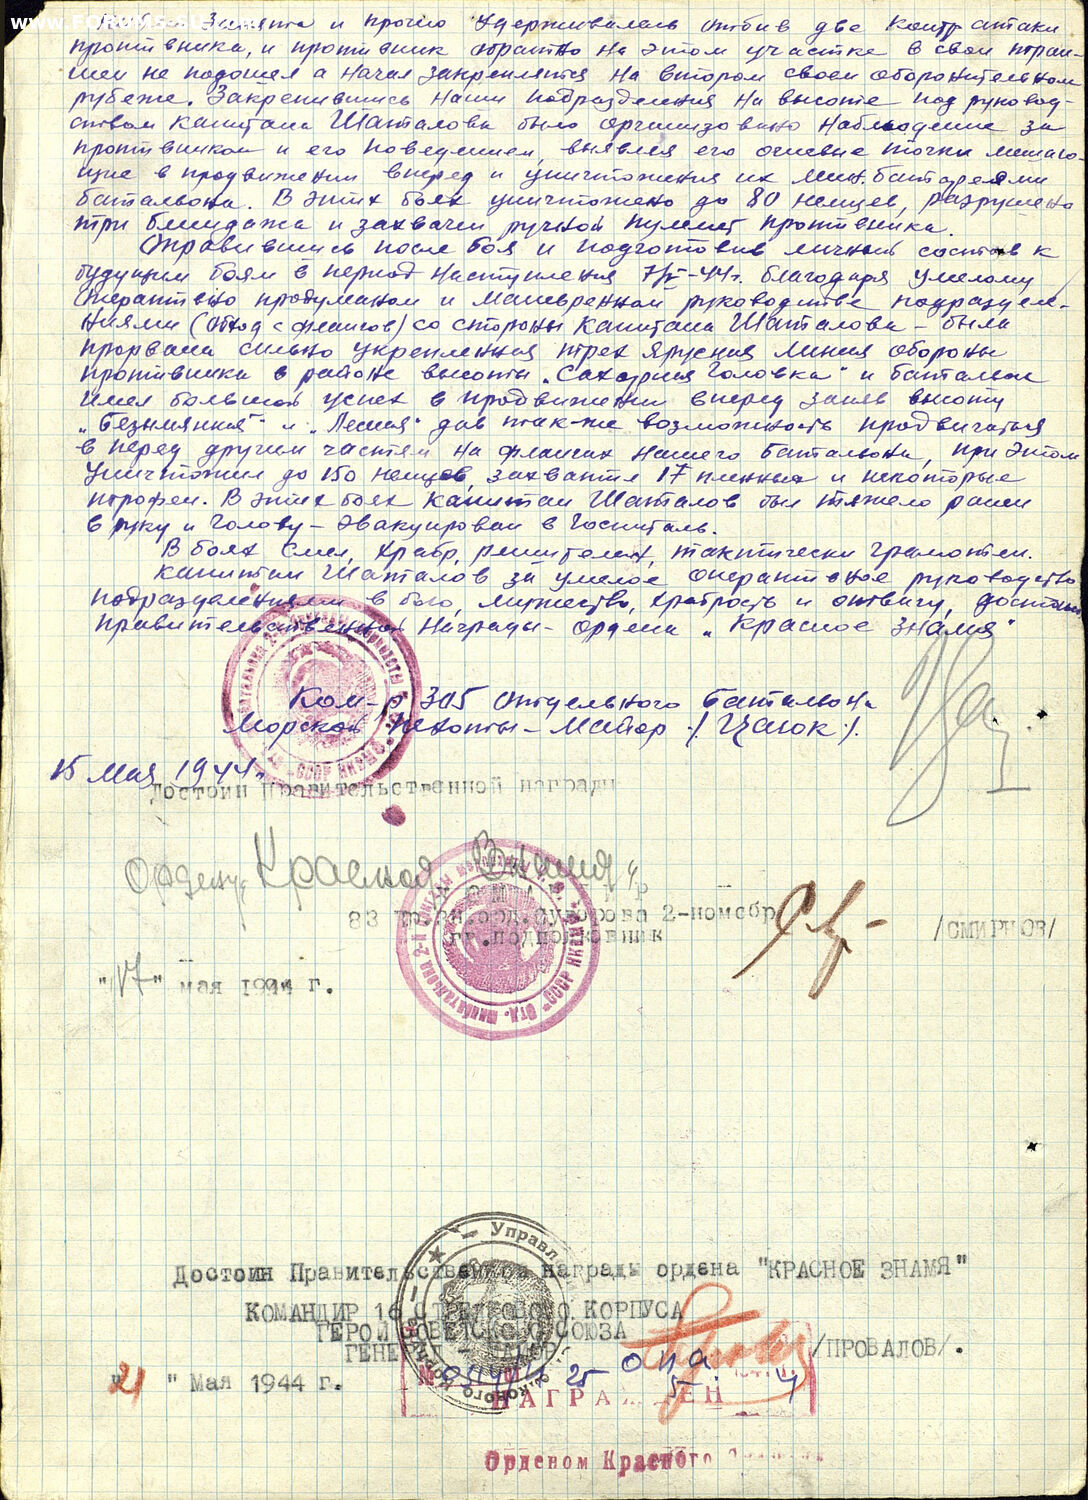 www.FORUMS-SU.com
Занята и прочно удерживалась отбив две контр атаки
противника, и противник обратно на этом участке в свои тран-
шеи не подошел а начал закрепляться на втором своем оборонительном
рубеже. Закрепившись наши подразделения на высоте под руковод-
ством капитана Шаталова было организовано наблюдение за
противником и его поведением, выявлял его огневые точки мешаю-
щие в продвижении вперед и уничтожения их мин. батареями
батальона. В этих боях уничтожено до 80 немцев, разрушено
три блиндажа и захвачен ручной пулемет противника.
Оправившись после боя и подготовив личный состав к
будущим боям в период наступления 7/V-44г. благодаря умелому
оперативно продуманом и маневренном руководстве подразделе-
ниями (обход с флангов) со стороны капитана Шаталова - была
прорвана сильно укрепленная трех ярусная линия обороны
противника в районе высоты "Сахарная Головка" и батальон
имел большой успех в продвижении вперед заняв высоту
"Безымянная" и "Лесная" дав так-же возможность продвигаться
в перед другим частям на флангах нашего батальона, при этом
уничтожил до 150 немцев, захватил 17 пленных и некоторые
трофеи. В этих боях капитан Шаталов был тяжело ранен
в руку и голову - эвакуирован в госпиталь.
В боях смел, храбр, решителен, тактически грамотен.
Капитан Шаталов за умелое оперативное руководство
подразделениями в бою, мужество, храбрость и отвагу, достоин
правительственной награды - ордена "Красное Знамя"
Ком-р 305 отдельного батальона
Морской пехоты - Майор /Цаюк/.
15 Мая 1944г.
Достоин Правительственной награды
Ордену Красное Знамя
83 бр. орд. Суворова 2-й
гв. подполковник
/СМИРНОВ/
"17" мая 1944 г.
Управл
Достоин Правительственной награды ордена "КРАСНОЕ ЗНАМЯ"
КОМАНДИР 16 СТРЕЛКОВОГО КОРПУСА
ГЕРОЙ СОВЕТСКОГО СОЮЗА
ГЕНЕРАЛ - МАЙОР /ПРОВАЛОВ/.
"21" Мая 1944 г.
НАГРАЖДЕН
Орденом Красного